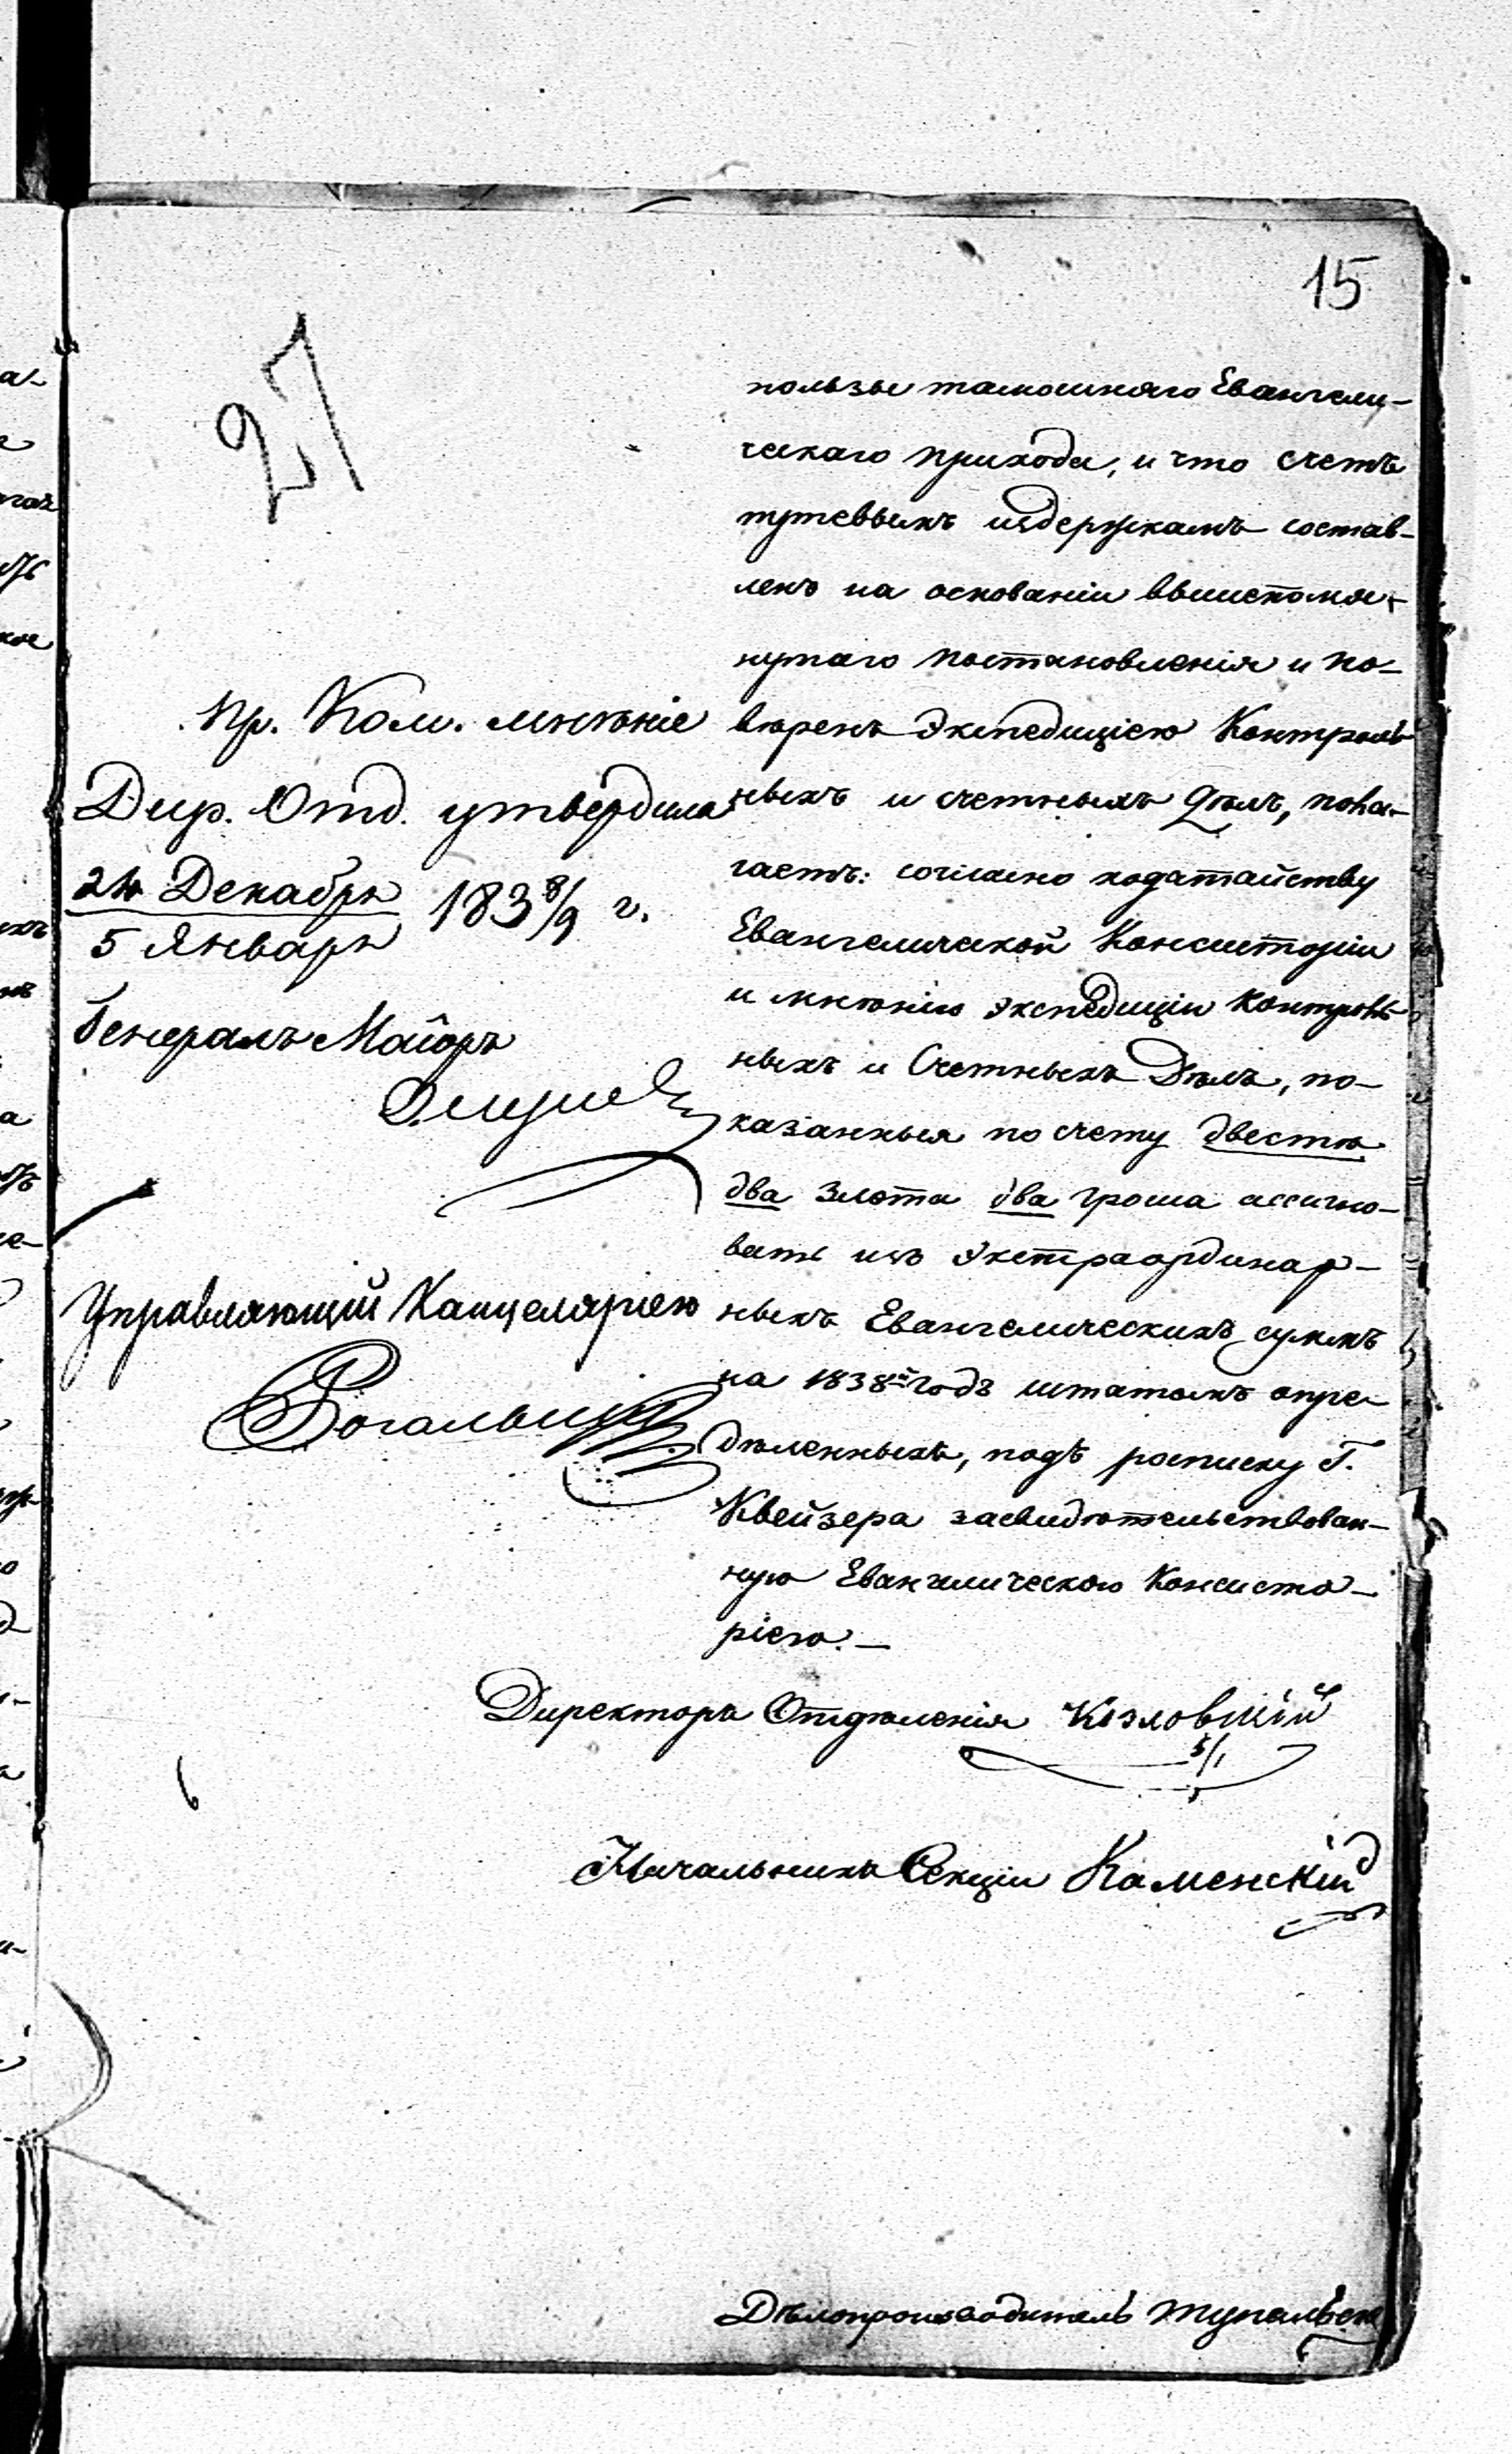 15
27
пользы тамошняго Евангели-
ческаго прихода, и что счетъ
путевымъ издержкамъ состав-
ленъ на основаніи вышепомя-
нутаго постановленія и по-
вѣренъ Экспедиціею Контроль
ныхъ и счетныхъ Дѣлъ, пола-
гаетъ: согласно ходатайству
Евангелической Консисторіи
и мнѣнію Экспедиціи Контроль
ныхъ и Счетныхъ Дѣлъ, по-
казанныя по счету двести
два злота два гроша ассигно-
вать изъ Экстраординар-
ныхъ Евангелическихъ суммъ
на 1838й годъ штатомъ опре-
дѣленныхъ, подъ росписку Г.
Квейзера засвидѣтельствован-
ную Евангелическою Консисто-
ріею.—
Пр. Ком. мнѣніе
Дир. Отд. утвердила
24 Декабря
5 Января
1838/9 г.
Генералъ Маіоръ
Управляющій Канцеляріею
Директоръ Отдѣленія Козловскій
5/1
Начальникъ Секціи Каменскій
Дѣлопроизводитель